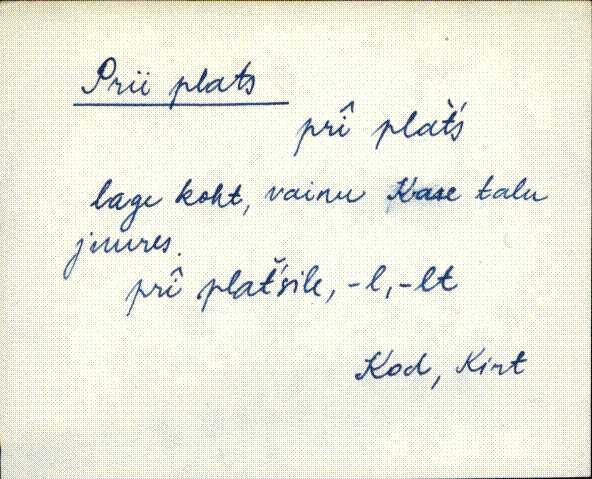 Prii plats
prî plat́s
lage koht, vainu Kase talu
juures.
prî plat́sile, -l, -lt
Kod, Kirt